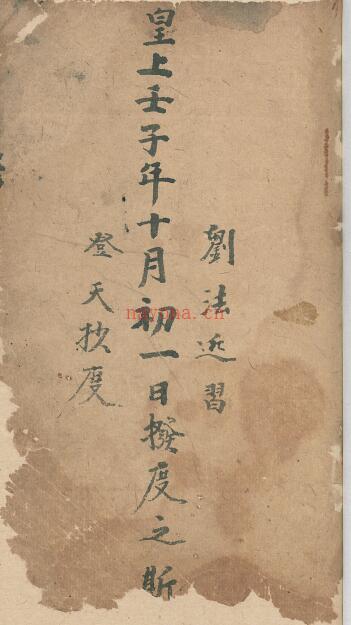 劉法近習
皇上壬子年十月初一日撥度之所
登天抄度
nayona.cn